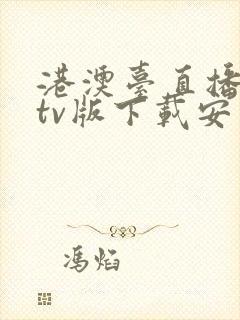 港澳臺直播
tv版下載安
馮焰